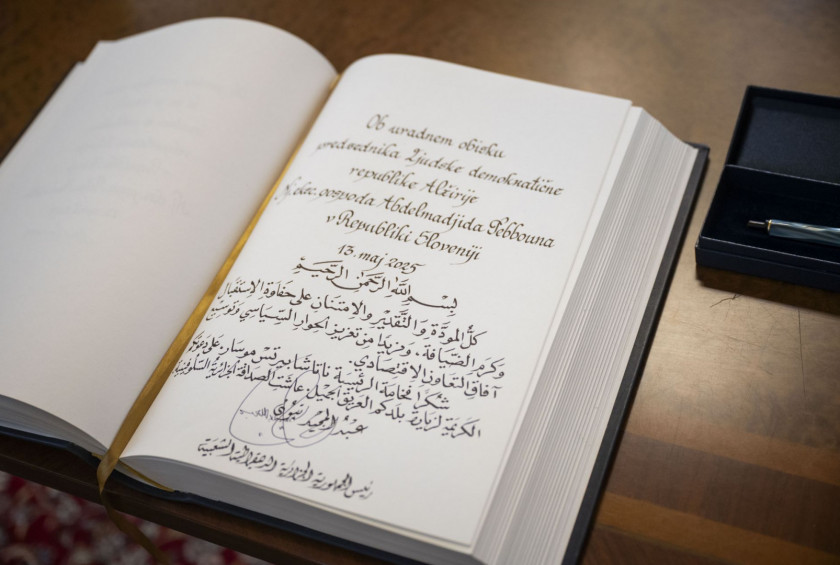 Ob uradnem obisku
predsednika Ljudske demokratične
republike Alžirije
Nj. eksc. gospoda Abdelmadjida Tebbouna
v Republiki Sloveniji
13. maj 2025
بِسْمِ اللَّهِ الرَّحْمَنِ الرَّحِيمْ
كلُّ المودّة وَالتَّقدِير والاِمتنَان على حفَاوة الإستقبَال
وكرَم الضيَافة، ومَزيدًا مِن تعزيز الحِوار السِّيَاسي وتوسيع
آفاق التعَاون الإقتصَادي.
شكرًا فخَامة الرئيسَة ناتاشا بيرتس موسار على دعوتكم
الكريمَة لزيارة بلَدكم العَريق الجميل. عاشت الصداقة الجزائرية السلوفينية
عَبْد المجيد تبّون
رئيس الجمهورية الجزائرية الديمقراطية الشعبية